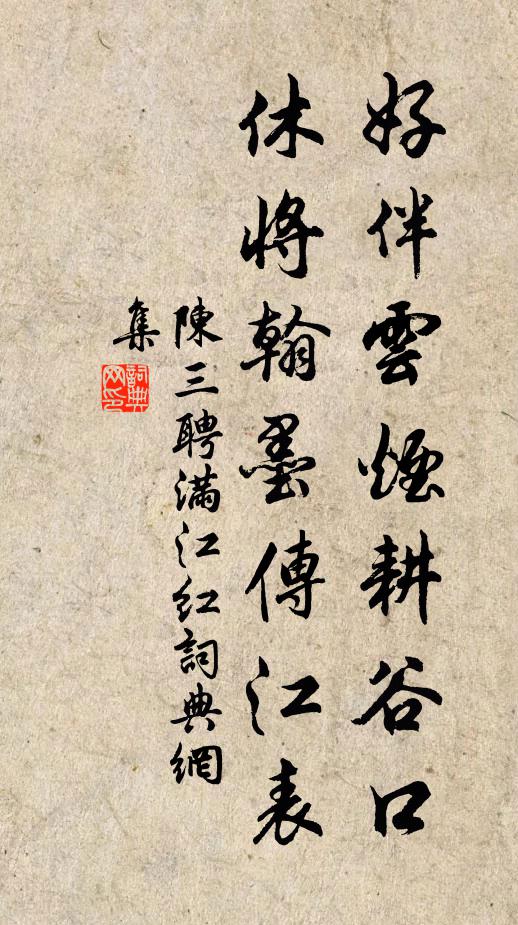 好伴雲煙耕谷口
休將翰墨傳江表
陳三聘滿江紅詞典網
集
詞典網印